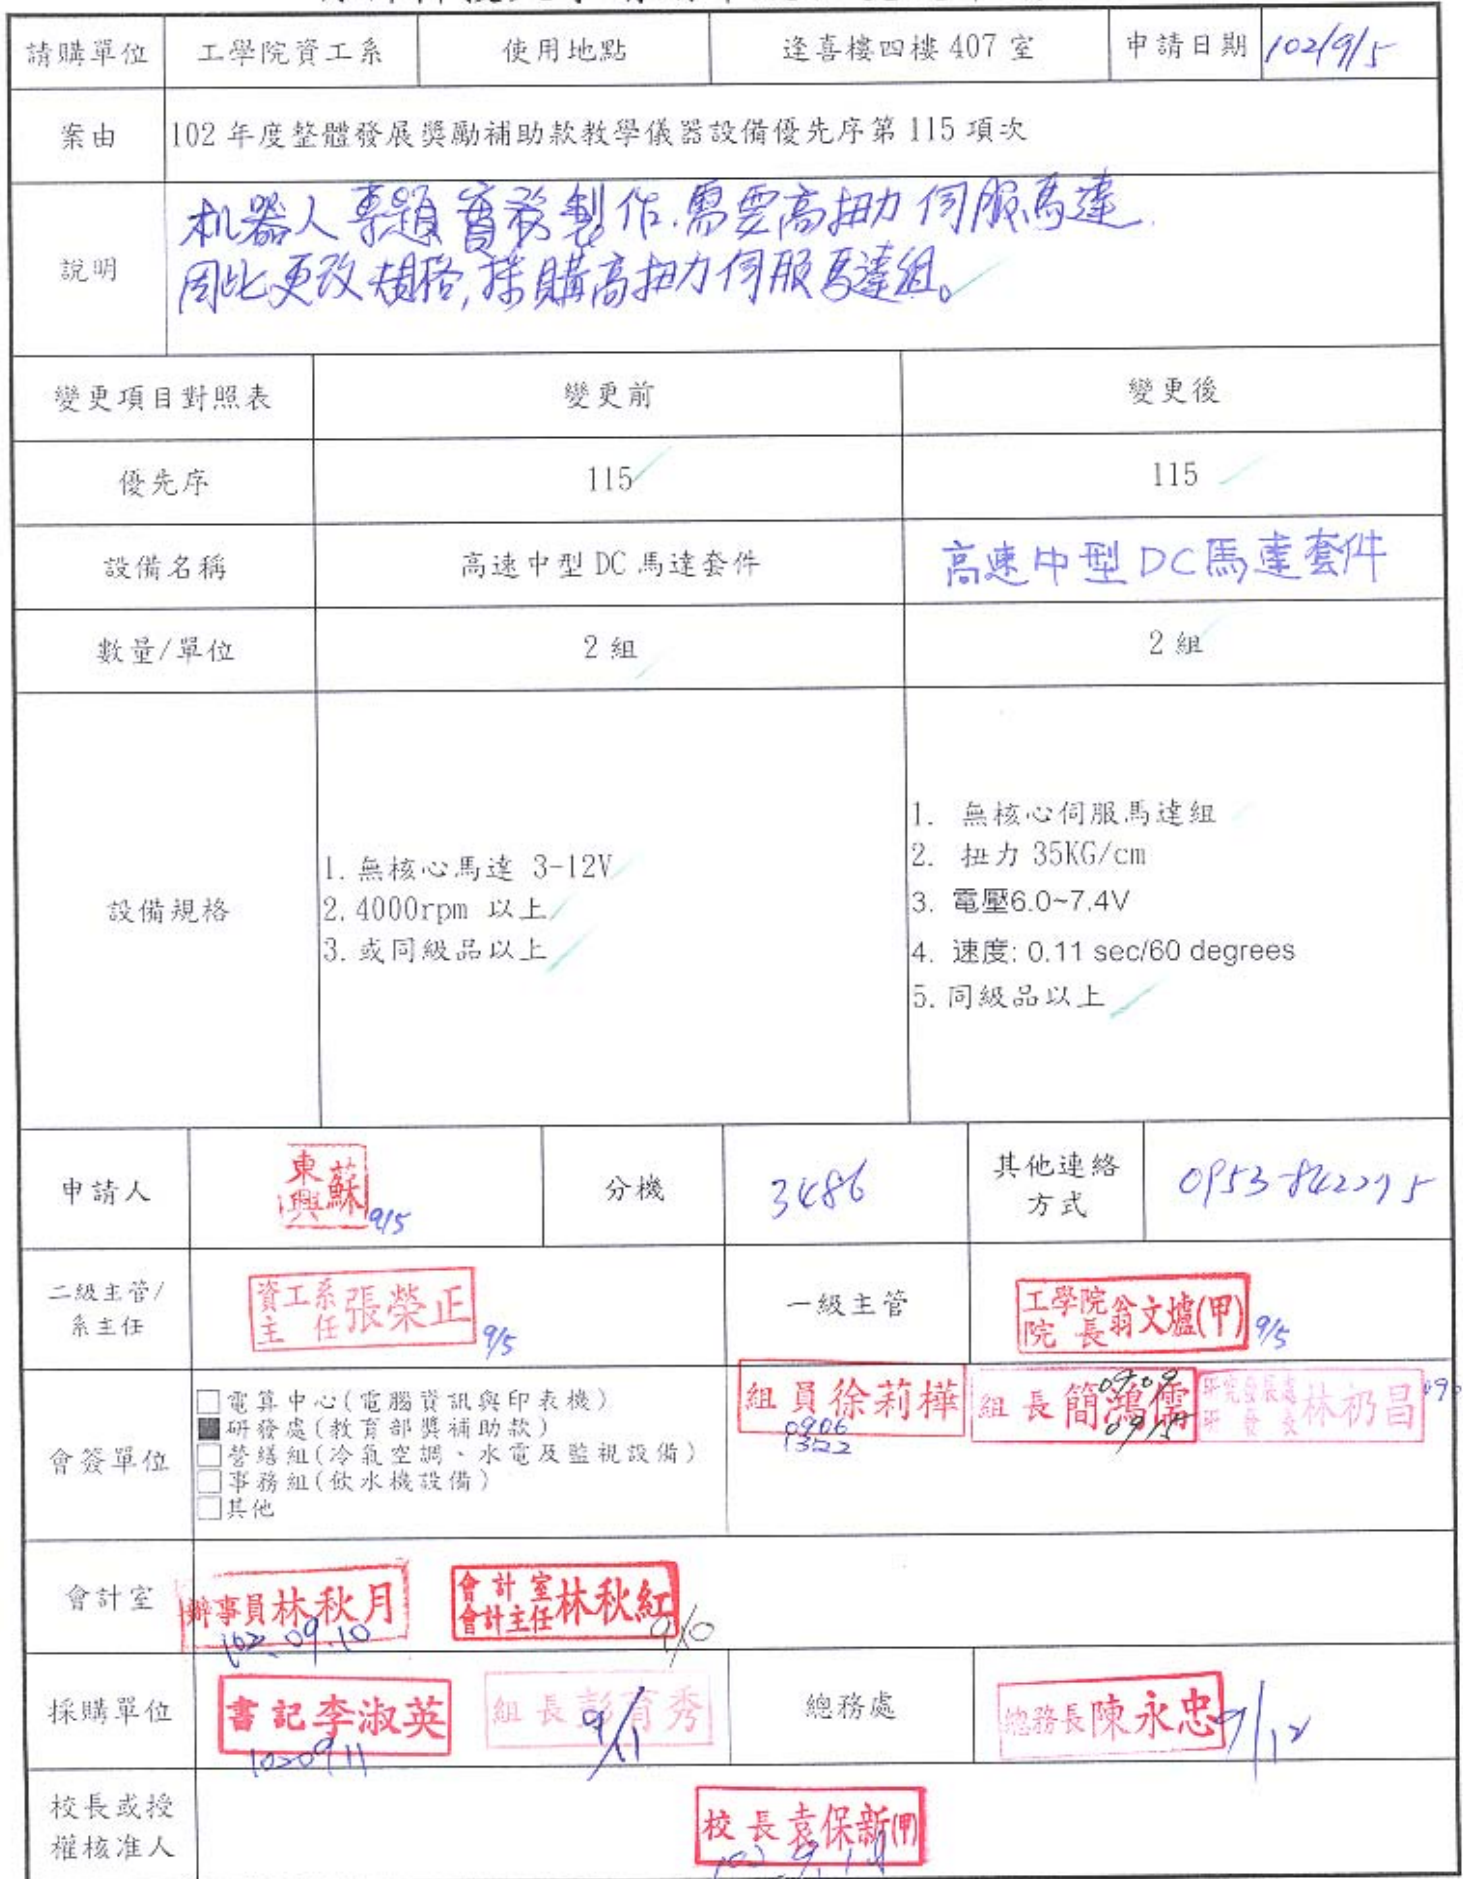 請購單位 工學院資工系 使用地點 逢喜樓四樓 407 室 申請日期 102/9/5
案由 102 年度整體發展獎勵補助款教學儀器設備優先序第 115 項次
机器人專題實務製作.需要高扭力伺服馬達.
說明
因此更改規格,採購高扭力伺服馬達組。
變更項目對照表 變更前 變更後
優先序 115 115
設備名稱 高速中型 DC 馬達套件 高速中型DC馬達套件
數量/單位 2 組 2 組
設備規格
1.無核心馬達 3-12V
2.4000rpm 以上
3.或同級品以上
1. 無核心伺服馬達組
2. 扭力 35KG/cm
3. 電壓6.0~7.4V
4. 速度: 0.11 sec/60 degrees
5.同級品以上
申請人 蘇東興 9/5 分機 3486 其他連絡
方式
二級主管/
系主任
資工系
主任 張榮正 9/5
一級主管
工學院
院長 翁文爐(甲) 9/5
會簽單位
□電算中心(電腦資訊與印表機)
■研發處(教育部獎補助款)
□營繕組(冷氣空調、水電及監視設備)
□事務組(飲水機設備)
□其他
組員徐莉樺
0906
1322
組長簡鴻儒
09.09
0915
研究發展處
研發長 林礽昌
會計室
辦事員林秋月
102.09.10
會計室
會計主任 林秋紅
9/10
採購單位
書記李淑英
1020911
組長彭育秀
9/11
總務處
總務長陳永忠 9/12
校長或授
權核准人
校長袁保新(甲)